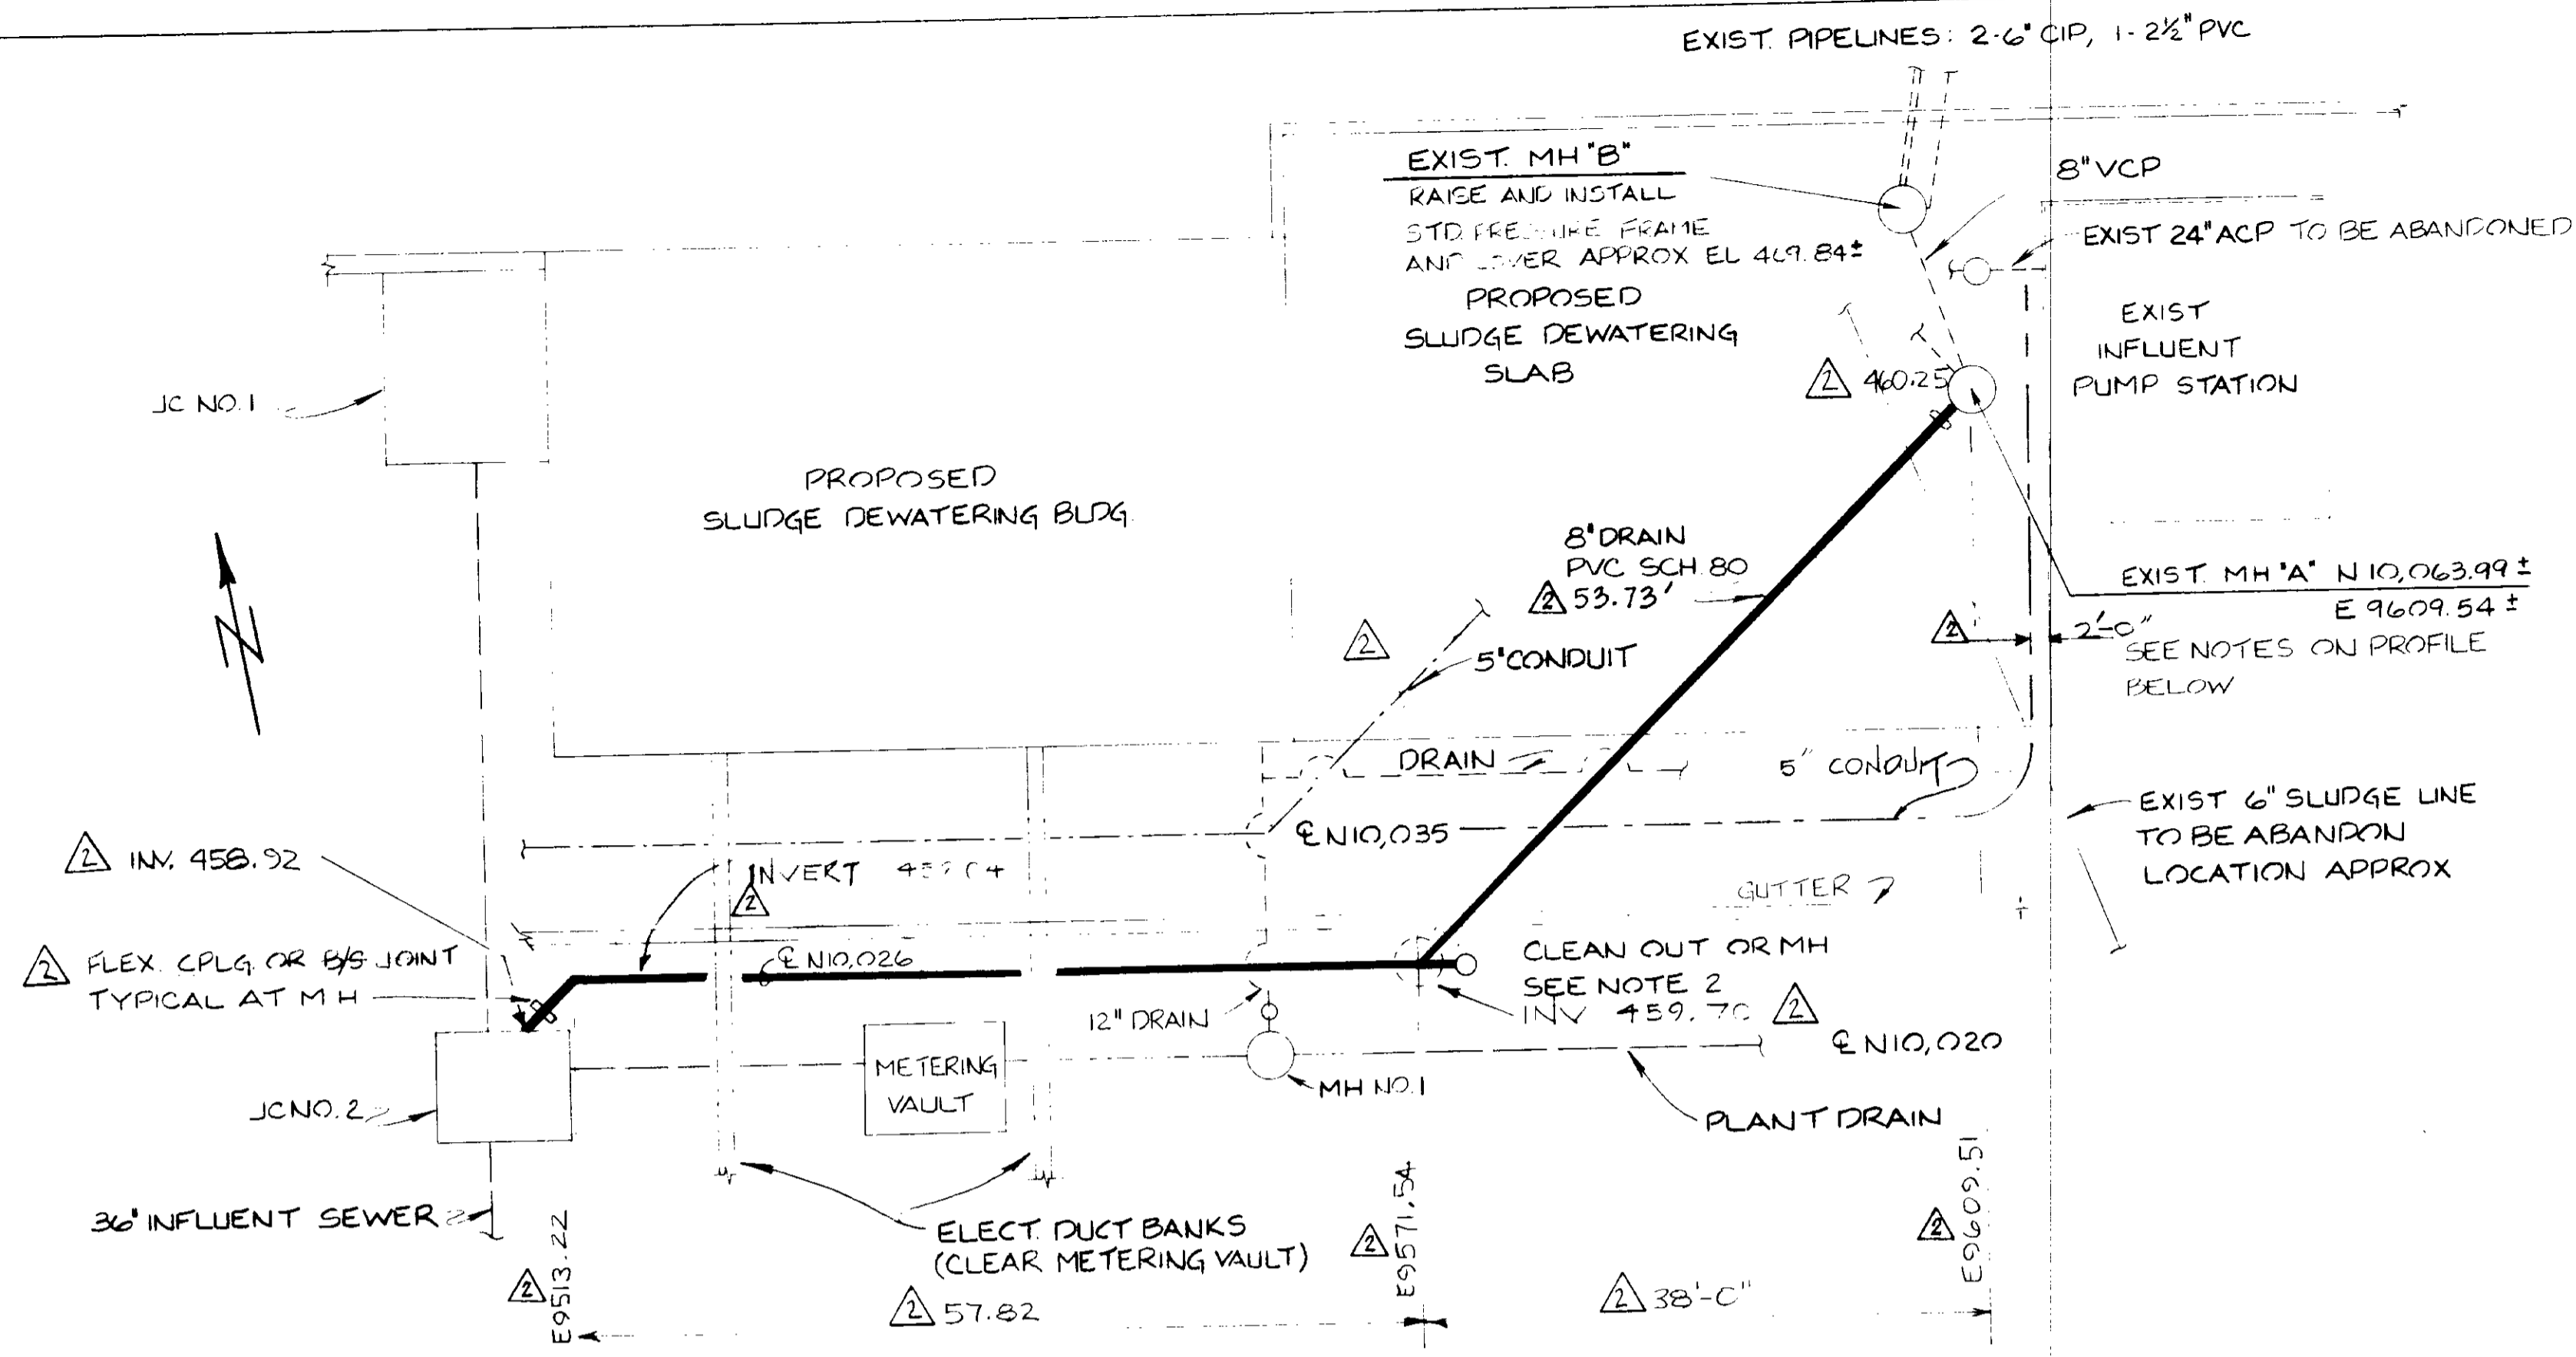 EXIST. PIPELINES: 2-6" CIP, 1-2½" PVC
EXIST. MH "B"
RAISE AND INSTALL
STD. FRAME
AND APPROX EL 469.84±
PROPOSED
SLUDGE DEWATERING
SLAB
8" VCP
EXIST 24" ACP TO BE ABANDONED
EXIST
INFLUENT
PUMP STATION
2 460.25
JC NO. 1
PROPOSED
SLUDGE DEWATERING BLDG.
8" DRAIN
PVC SCH. 80
2 53.73'
EXIST. MH "A" N 10,063.99 ±
E 9609.54 ±
SEE NOTES ON PROFILE
BELOW
2
2'-0"
2
5" CONDUIT
N
DRAIN
5" CONDUIT
EXIST 6" SLUDGE LINE
TO BE ABANDON
LOCATION APPROX
℄ N10,035
2 INV. 458.92
INVERT
2
GUTTER
2 FLEX. CPLG. OR B/S JOINT
TYPICAL AT MH
℄ N10,026
CLEAN OUT OR MH
SEE NOTE 2
INV 459.70 2
12" DRAIN
℄ N10,020
METERING
VAULT
MH NO. 1
JC NO. 2
PLANT DRAIN
36" INFLUENT SEWER
ELECT. DUCT BANKS
(CLEAR METERING VAULT)
2 E9513.22
2 57.82
2 E9571.54
2 38'-0"
2 E9609.51